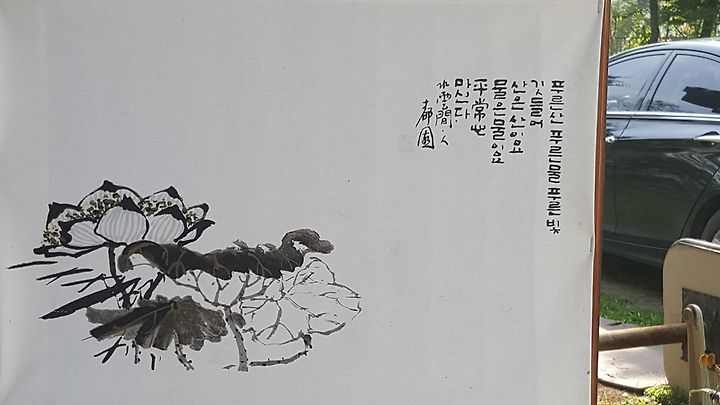 푸른산 푸른물 푸른빛
깃들어
산은 산이요
물은 물이요
平常心
마신다.
水雲間人